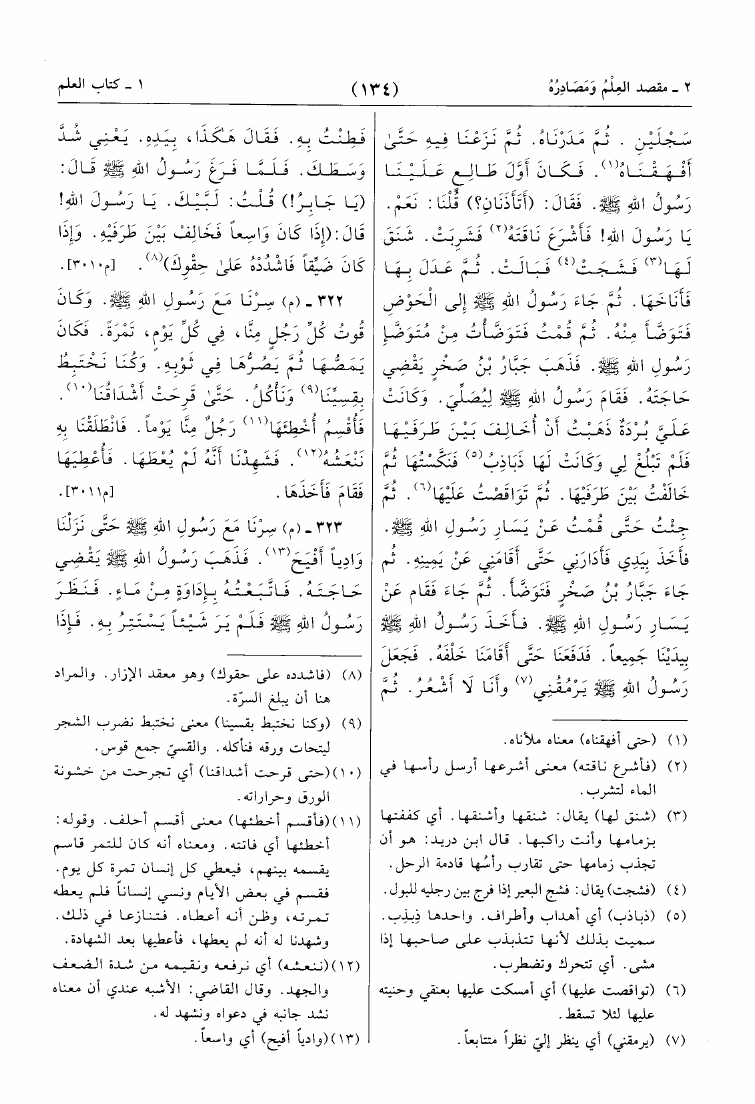 ٢ ـ مقصد العِلْمُ وَمَصَادِرُهُ
(١٣٤)
١ ـ كتاب العلم
سَجْلَيْنِ . ثُمَّ مَدَرْنَاهُ. ثُمَّ نَزَعْنَا فِيهِ حَتَّىٰ
أَفْهَقْنَاهُ(١). فَكَانَ أَوَّلَ طَالِعٍ عَلَيْنَا
رَسُولُ اللهِ ﷺ. فَقَالَ: (أَتَأْذَنَانِ؟) قُلْنَا: نَعَمْ.
يَا رَسُولَ اللهِ! فَأَشْرَعَ نَاقَتَهُ(٢) فَشَرِبَتْ. شَنَقَ
لَهَا(٣) فَشَجَتْ(٤) فَبَالَتْ. ثُمَّ عَدَلَ بِهَا
فَأَنَاخَهَا. ثُمَّ جَاءَ رَسُولُ اللهِ ﷺ إِلى الْحَوْضِ
فَتَوَضَّأَ مِنْهُ. ثُمَّ قُمْتُ فَتَوَضَّأْتُ مِنْ مُتَوَضَّإِ
رَسُولِ اللهِ ﷺ. فَذَهَبَ جَبَّارُ بْنُ صَخْرٍ يَقْضِي
حَاجَتَهُ. فَقَامَ رَسُولُ اللهِ ﷺ لِيُصَلِّيَ. وَكَانَتْ
عَلَيَّ بُرْدَةٌ ذَهَبْتُ أَنْ أُخَالِفَ بَيْنَ طَرَفَيْهَا
فَلَمْ تَبْلُغْ لِي وَكَانَتْ لَهَا ذَبَاذِبُ(٥) فَنَكَّسْتُهَا ثُمَّ
خَالَفْتُ بَيْنَ طَرَفَيْهَا. ثُمَّ تَوَاقَصْتُ عَلَيْهَا(٦). ثُمَّ
جِئْتُ حَتَّى قُمْتُ عَنْ يَسَارِ رَسُولِ اللهِ ﷺ.
فَأَخَذَ بِيَدِي فَأَدَارَنِي حَتَّى أَقَامَنِي عَنْ يَمِينِهِ. ثُم
جَاءَ جَبَّارُ بْنُ صَخْرٍ فَتَوَضَّأَ. ثُمَّ جَاءَ فَقَام عَنْ
يَسَارِ رَسُولِ اللهِ ﷺ. فَأَخَذَ رَسُولُ اللهِ ﷺ
بِيَدَيْنَا جَمِيعاً. فَدَفَعَنَا حَتَّى أَقَامَنَا خَلْفَهُ. فَجَعَلَ
رَسُولُ اللهِ ﷺ يَرْمُقُنِي(٧) وَأَنَا لَا أَشْعُرُ. ثُمَّ
(١) (حتى أفهقناه) معناه ملأناه.
(٢) (فأشرع ناقته) معنى أشرعها أرسل رأسها في
الماء لتشرب.
(٣) (شنق لها) يقال: شنقها وأشنقها. أي كففتها
بزمامها وأنت راكبها. قال ابن دريد: هو أن
تجذب زمامها حتى تقارب رأسُها قادمة الرحل.
(٤) (فشجت) يقال: فشج البعير إذا فرج بين رجليه للبول.
(٥) (ذباذب) أي أهداب وأطراف. واحدها ذِبذِب.
سميت بذلك لأنها تتذبذب على صاحبها إذا
مشى. أي تتحرك وتضطرب.
(٦) (تواقصت عليها) أي أمسكت عليها بعنقي وحنيته
عليها لئلا تسقط.
(٧) (يرمقني) أي ينظر إليّ نظراً متتابعاً.
فَطِنْتُ بِهِ. فَقَالَ هٰكَذَا، بِيَدِهِ. يَعْنِي شُدَّ
وَسَطَكَ. فَلَمَّا فَرَغَ رَسُولُ اللهِ ﷺ قَالَ:
(يَا جَابِرُ!) قُلْتُ: لَبَّيْكَ. يَا رَسُولَ اللهِ!
قَالَ:(إِذَا كَانَ وَاسِعاً فَخَالِفْ بَيْنَ طَرَفَيْهِ. وَإِذَا
كَانَ ضَيِّقاً فَاشْدُدْهُ عَلىٰ حِقْوِكَ)(٨). [م٣٠١٠].
٣٢٢ ـ (م) سِرْنَا مَعَ رَسُولِ اللهِ ﷺ. وَكَانَ
قُوتُ كُلِّ رَجُلٍ مِنَّا، فِي كُلِّ يَوْمٍ، تَمْرَةً. فَكَانَ
يَمَصُّهَا ثُمَّ يَصُرُّهَا فِي ثَوْبِهِ. وَكُنَا نَخْتَبِطُ
بِقِسِيِّنَا(٩) وَنَأْكُلُ. حَتَّىٰ قَرِحَتْ أَشْدَاقُنَا(١٠).
فَأُقْسِمُ أُخْطِئَهَا(١١) رَجُلٌ مِنَّا يَوْماً. فَانْطَلَقْنَا بِهِ
نَنْعَشُهُ(١٢). فَشَهِدْنَا أَنَّهُ لَمْ يُعْطَهَا. فَأُعْطِيَهَا
فَقَامَ فَأَخَذَهَا. [م٣٠١١].
٣٢٣ ـ (م) سِرْنَا مَعَ رَسُولِ اللهِ ﷺ حَتَّى نَزَلْنَا
وَادِياً أَفْيَحَ(١٣). فَذَهَبَ رَسُولُ اللهِ ﷺ يَقْضِي
حَاجَتَهُ. فَاتَّبَعْتُهُ بِإِدَاوَةٍ مِنْ مَاءٍ. فَنَظَرَ
رَسُولُ اللهِ ﷺ فَلَمْ يَرَ شَيْئاً يَسْتَتِرُ بِهِ. فَإِذَا
(٨) (فاشدده على حقوك) وهو معقد الإزار. والمراد
هنا أن يبلغ السرّة.
(٩) (وكنا نختبط بقسينا) معنى نختبط نضرب الشجر
ليتحات ورقه فنأكله. والقسيّ جمع قوس.
(١٠)(حتى قرحت أشداقنا) أي تجرحت من خشونة
الورق وحراراته.
(١١)(فأقسم أخطئها) معنى أقسم أحلف. وقوله:
أخطئها أي فاتته. ومعناه أنه كان للتمر قاسم
يقسمه بينهم، فيعطي كل إنسان تمرة كل يوم.
فقسم في بعض الأيام ونسي إنساناً فلم يعطه
تمرته، وظن أنه أعطاه. فتنازعا في ذلك.
وشهدنا له أنه لم يعطها، فأعطيها بعد الشهادة.
(١٢)(ننعشه) أي نرفعه ونقيمه من شدة الضعف
والجهد. وقال القاضي: الأشبه عندي أن معناه
نشد جانبه في دعواه ونشهد له.
(١٣)(وادياً أفيح) أي واسعاً.